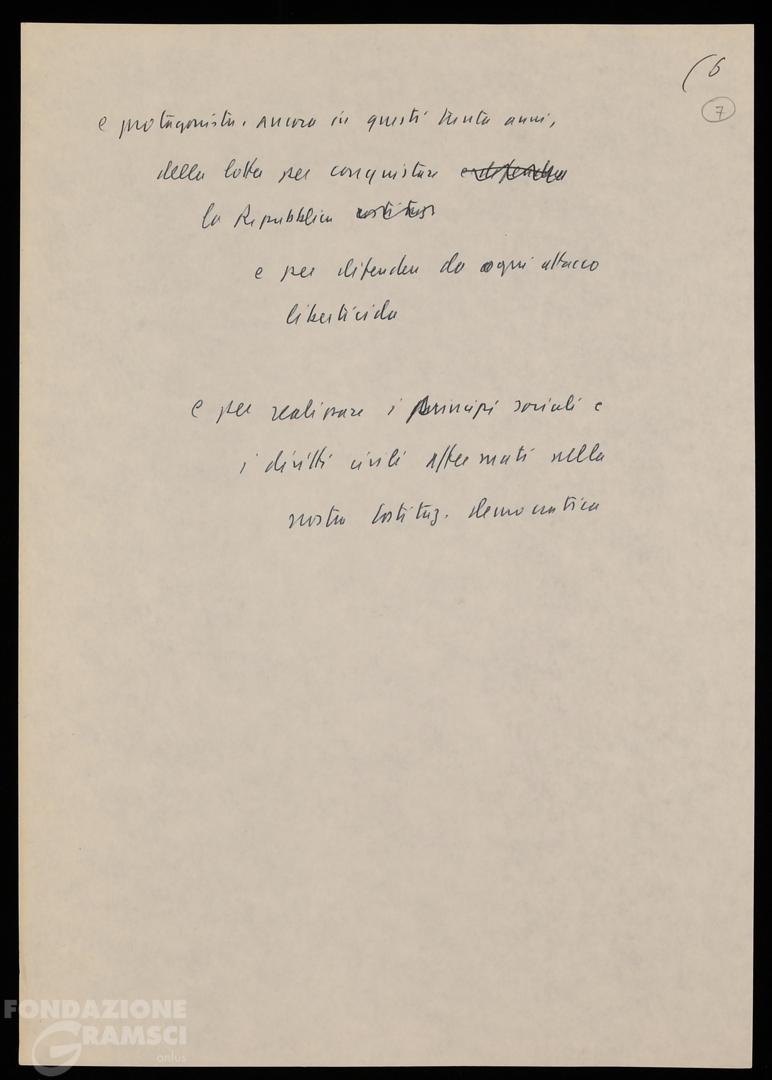 (6
7
e protagonista, ancora in questi trenta anni,
della lotta per conquistare e difendere
la Repubblica
e per difendere da ogni attacco
liberticida
e per realizzare i principi sociali e
i diritti civili affermati nella
nostra Costituz. democratica
FONDAZIONE
GRAMSCI
onlus